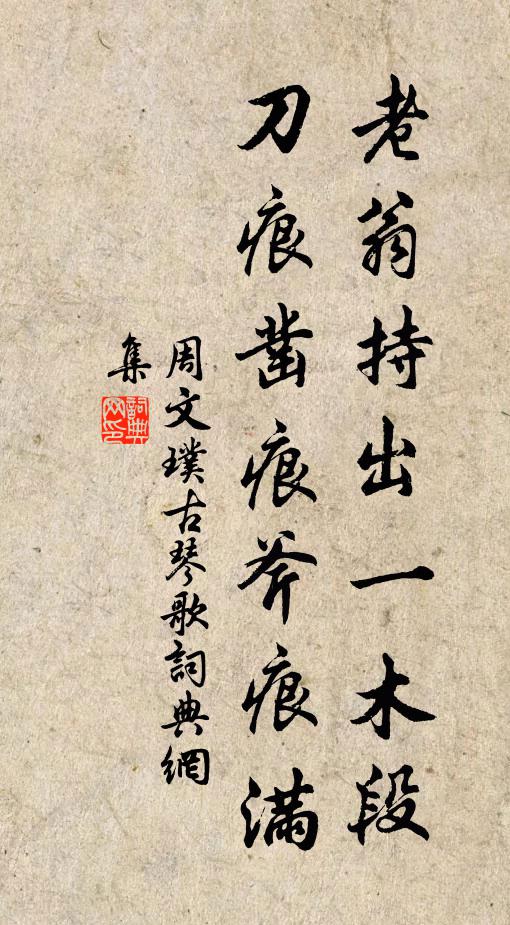 老翁持出一木段
刀痕凿痕斧痕滿
周文璞古琴歌詞典網
集
詞典
网印